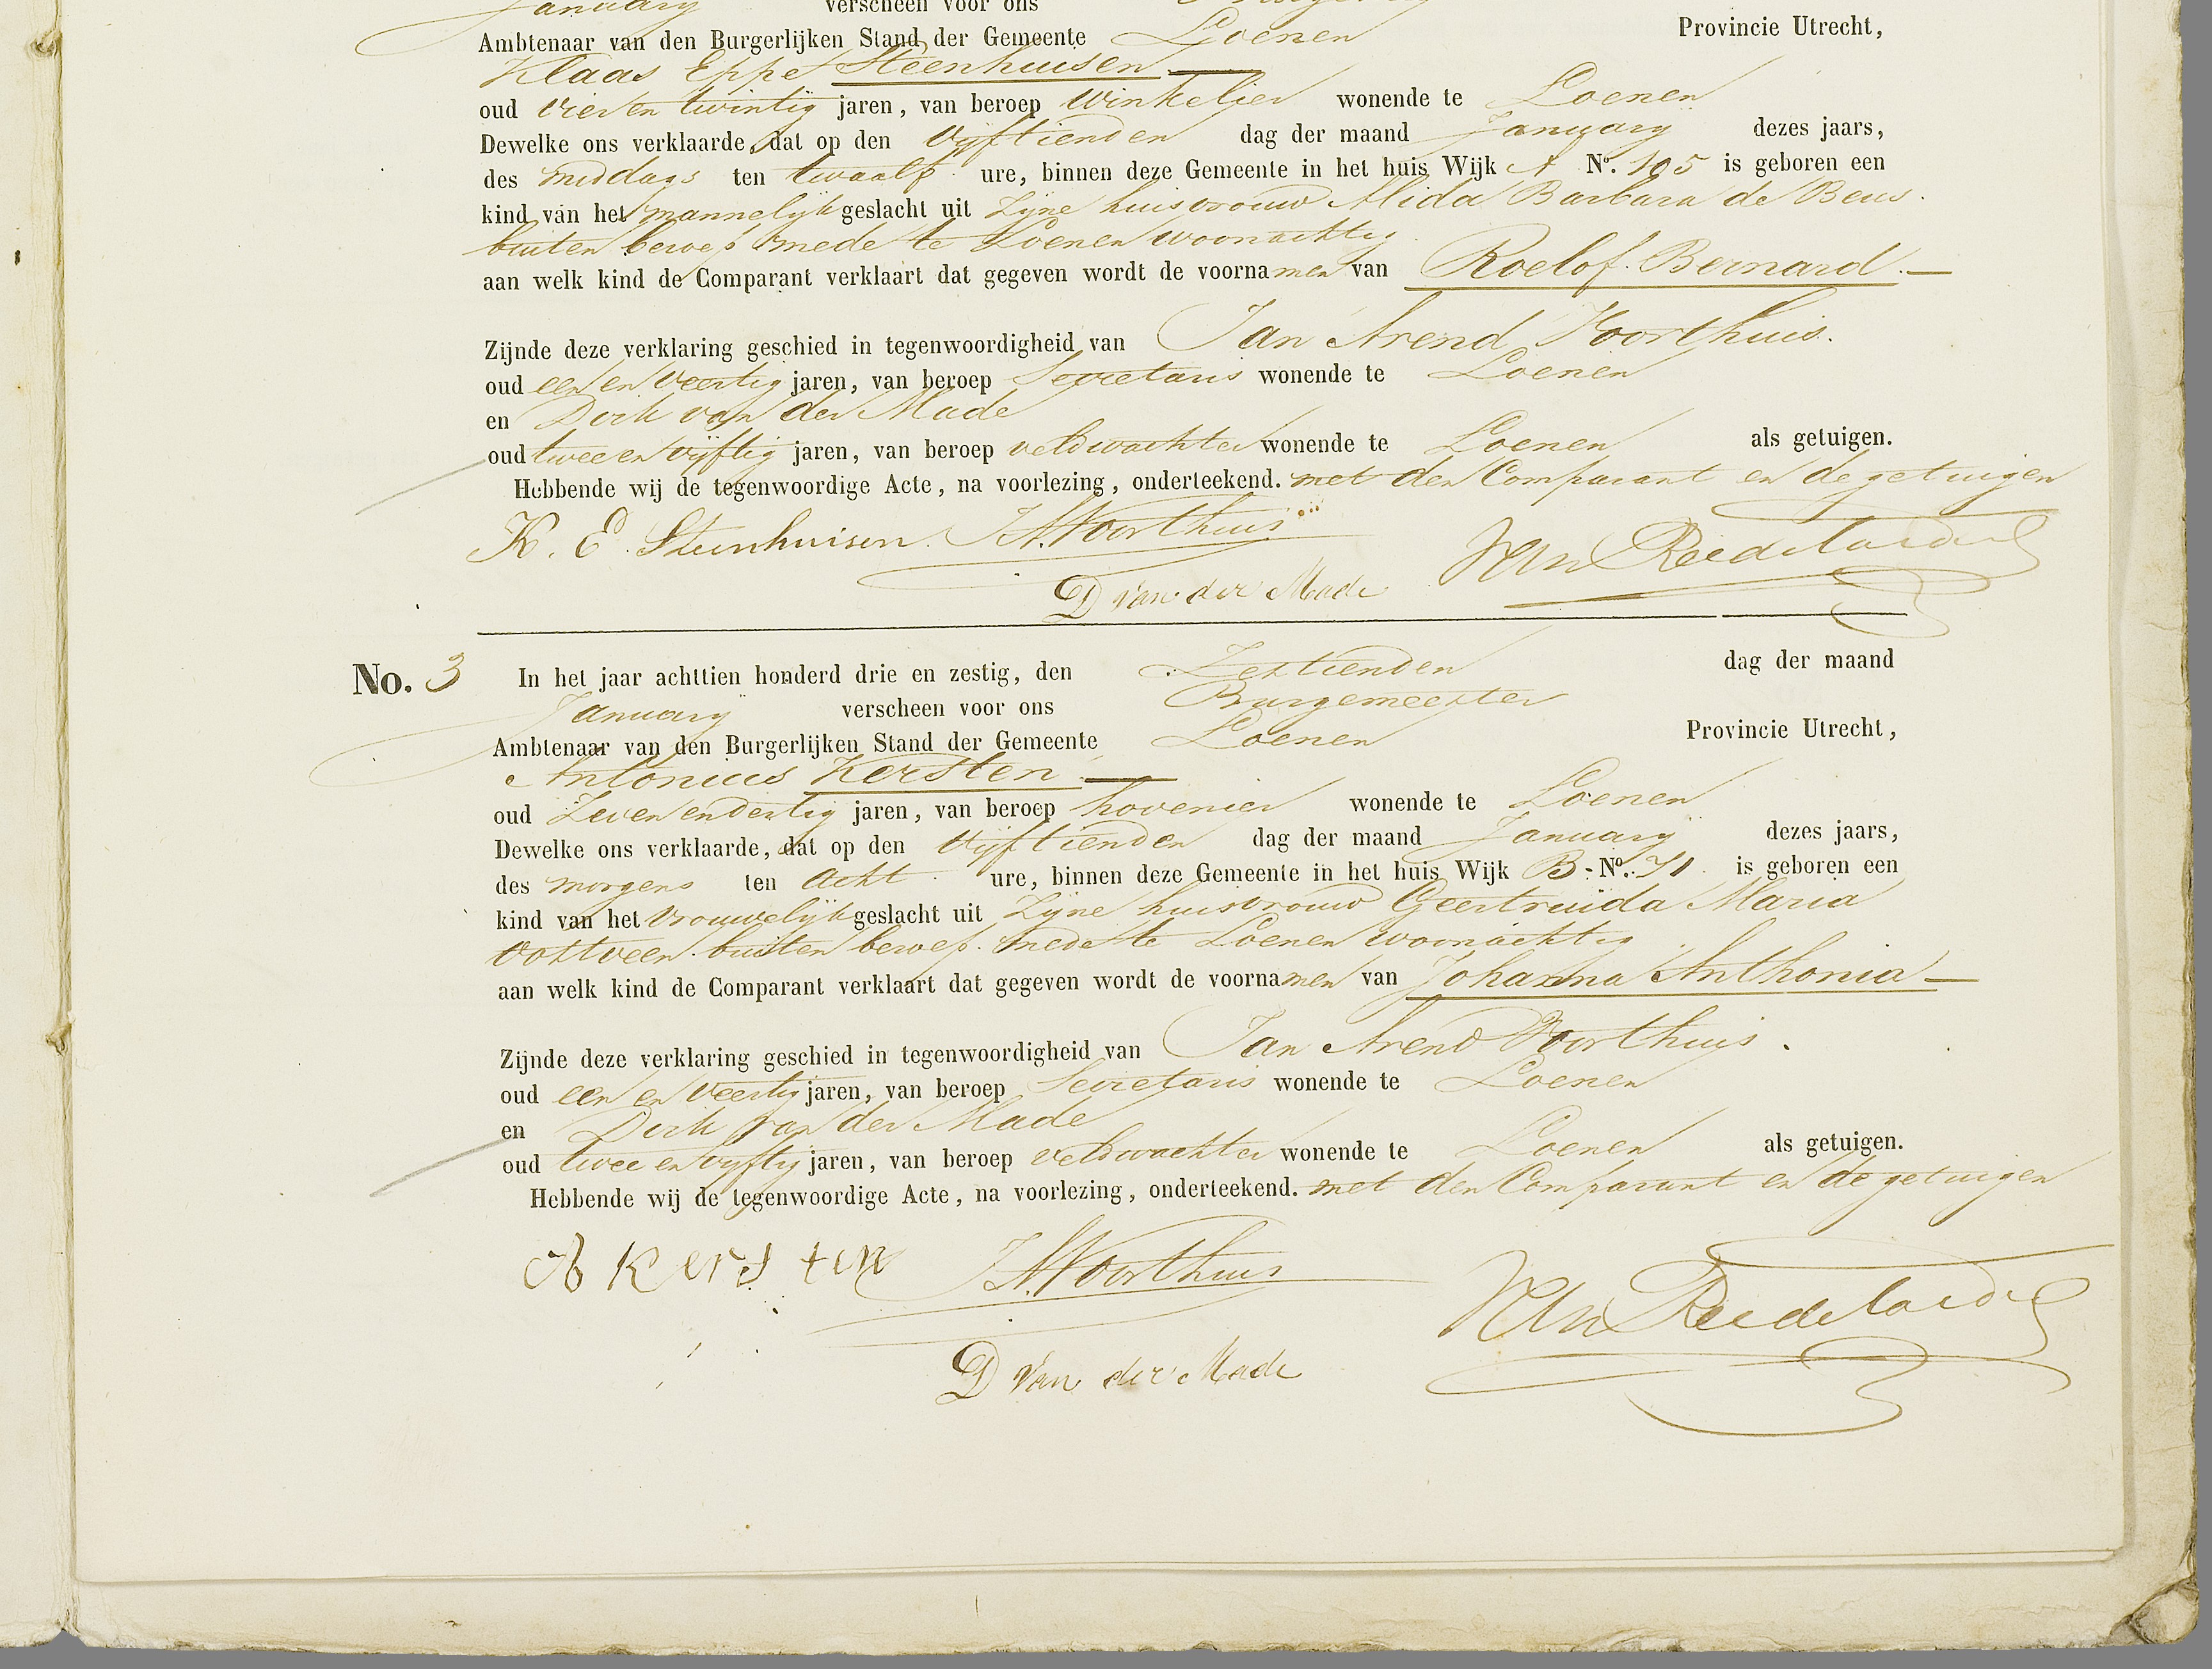 January verscheen voor ons
Ambtenaar van den Burgerlijken Stand der Gemeente Loenen Provincie Utrecht,
Klaas Eppe Steenhuisen
oud vier en twintig jaren, van beroep winkelier wonende te Loenen
Dewelke ons verklaarde, dat op den vyftienden dag der maand January dezes jaars,
des middags ten twaalf ure, binnen deze Gemeente in het huis Wijk A No. 105 is geboren een
kind van het mannelyk geslacht uit zyne huisvrouw Alida Barbara de Beus.
buiten beroep mede te Loenen woonachtig.
aan welk kind de Comparant verklaart dat gegeven wordt de voornamen van Roelof Bernard.
Zijnde deze verklaring geschied in tegenwoordigheid van Jan Arend Voorthuis.
oud een en veertig jaren, van beroep Secretaris wonende te Loenen
en Dirk van der Made
oud twee en vyftig jaren, van beroep veldwachter wonende te Loenen als getuigen.
Hebbende wij de tegenwoordige Acte, na voorlezing, onderteekend. met den Comparant en de getuigen
K. E. Steenhuisen. J.A. Voorthuis
D van der Made
No. 3 In het jaar achttien honderd drie en zestig, den Zestienden dag der maand
January verscheen voor ons Burgemeester
Ambtenaar van den Burgerlijken Stand der Gemeente Loenen Provincie Utrecht,
Antonius Kersten
oud Zeven en dertig jaren, van beroep hovenier wonende te Loenen
Dewelke ons verklaarde, dat op den Vyftienden dag der maand January dezes jaars,
des morgens ten acht ure, binnen deze Gemeente in het huis Wijk B No. 71 is geboren een
kind van het vrouwelyk geslacht uit zyne huisvrouw Geertruida Maria
buiten beroep. mede te Loenen woonachtig.
aan welk kind de Comparant verklaart dat gegeven wordt de voornamen van Johanna Anthonia
Zijnde deze verklaring geschied in tegenwoordigheid van Jan Arend Voorthuis.
oud een en veertig jaren, van beroep Secretaris wonende te Loenen
en Dirk van der Made
oud twee en vyftig jaren, van beroep veldwachter wonende te Loenen als getuigen.
Hebbende wij de tegenwoordige Acte, na voorlezing, onderteekend. met den Comparant en de getuigen
A Kersten J.A. Voorthuis
D van der Made